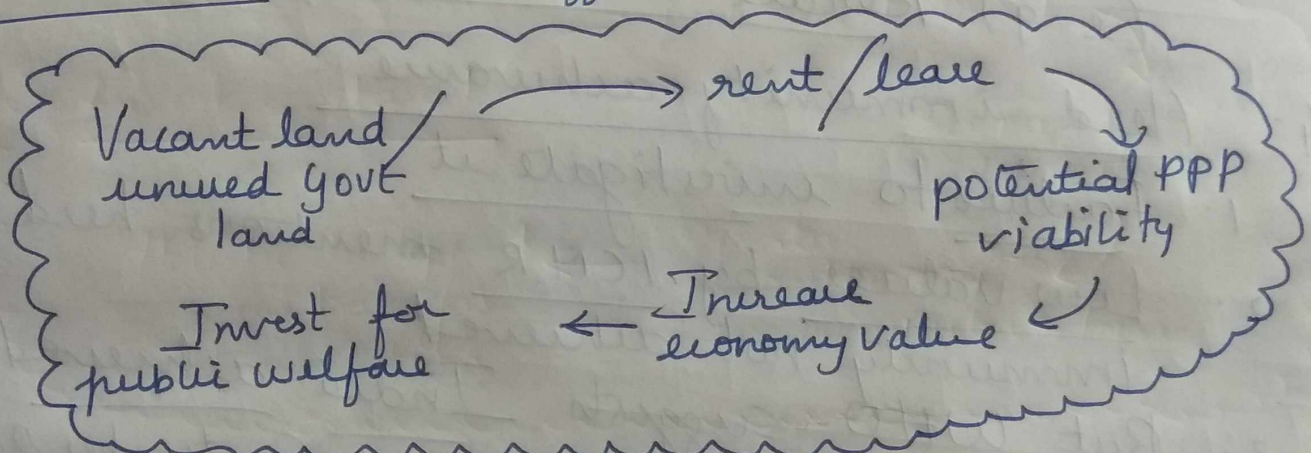 Vacant land /
unused govt
land
→ rent / lease
potential PPP
viability
Increase
economy value
←
Invest for
public welfare